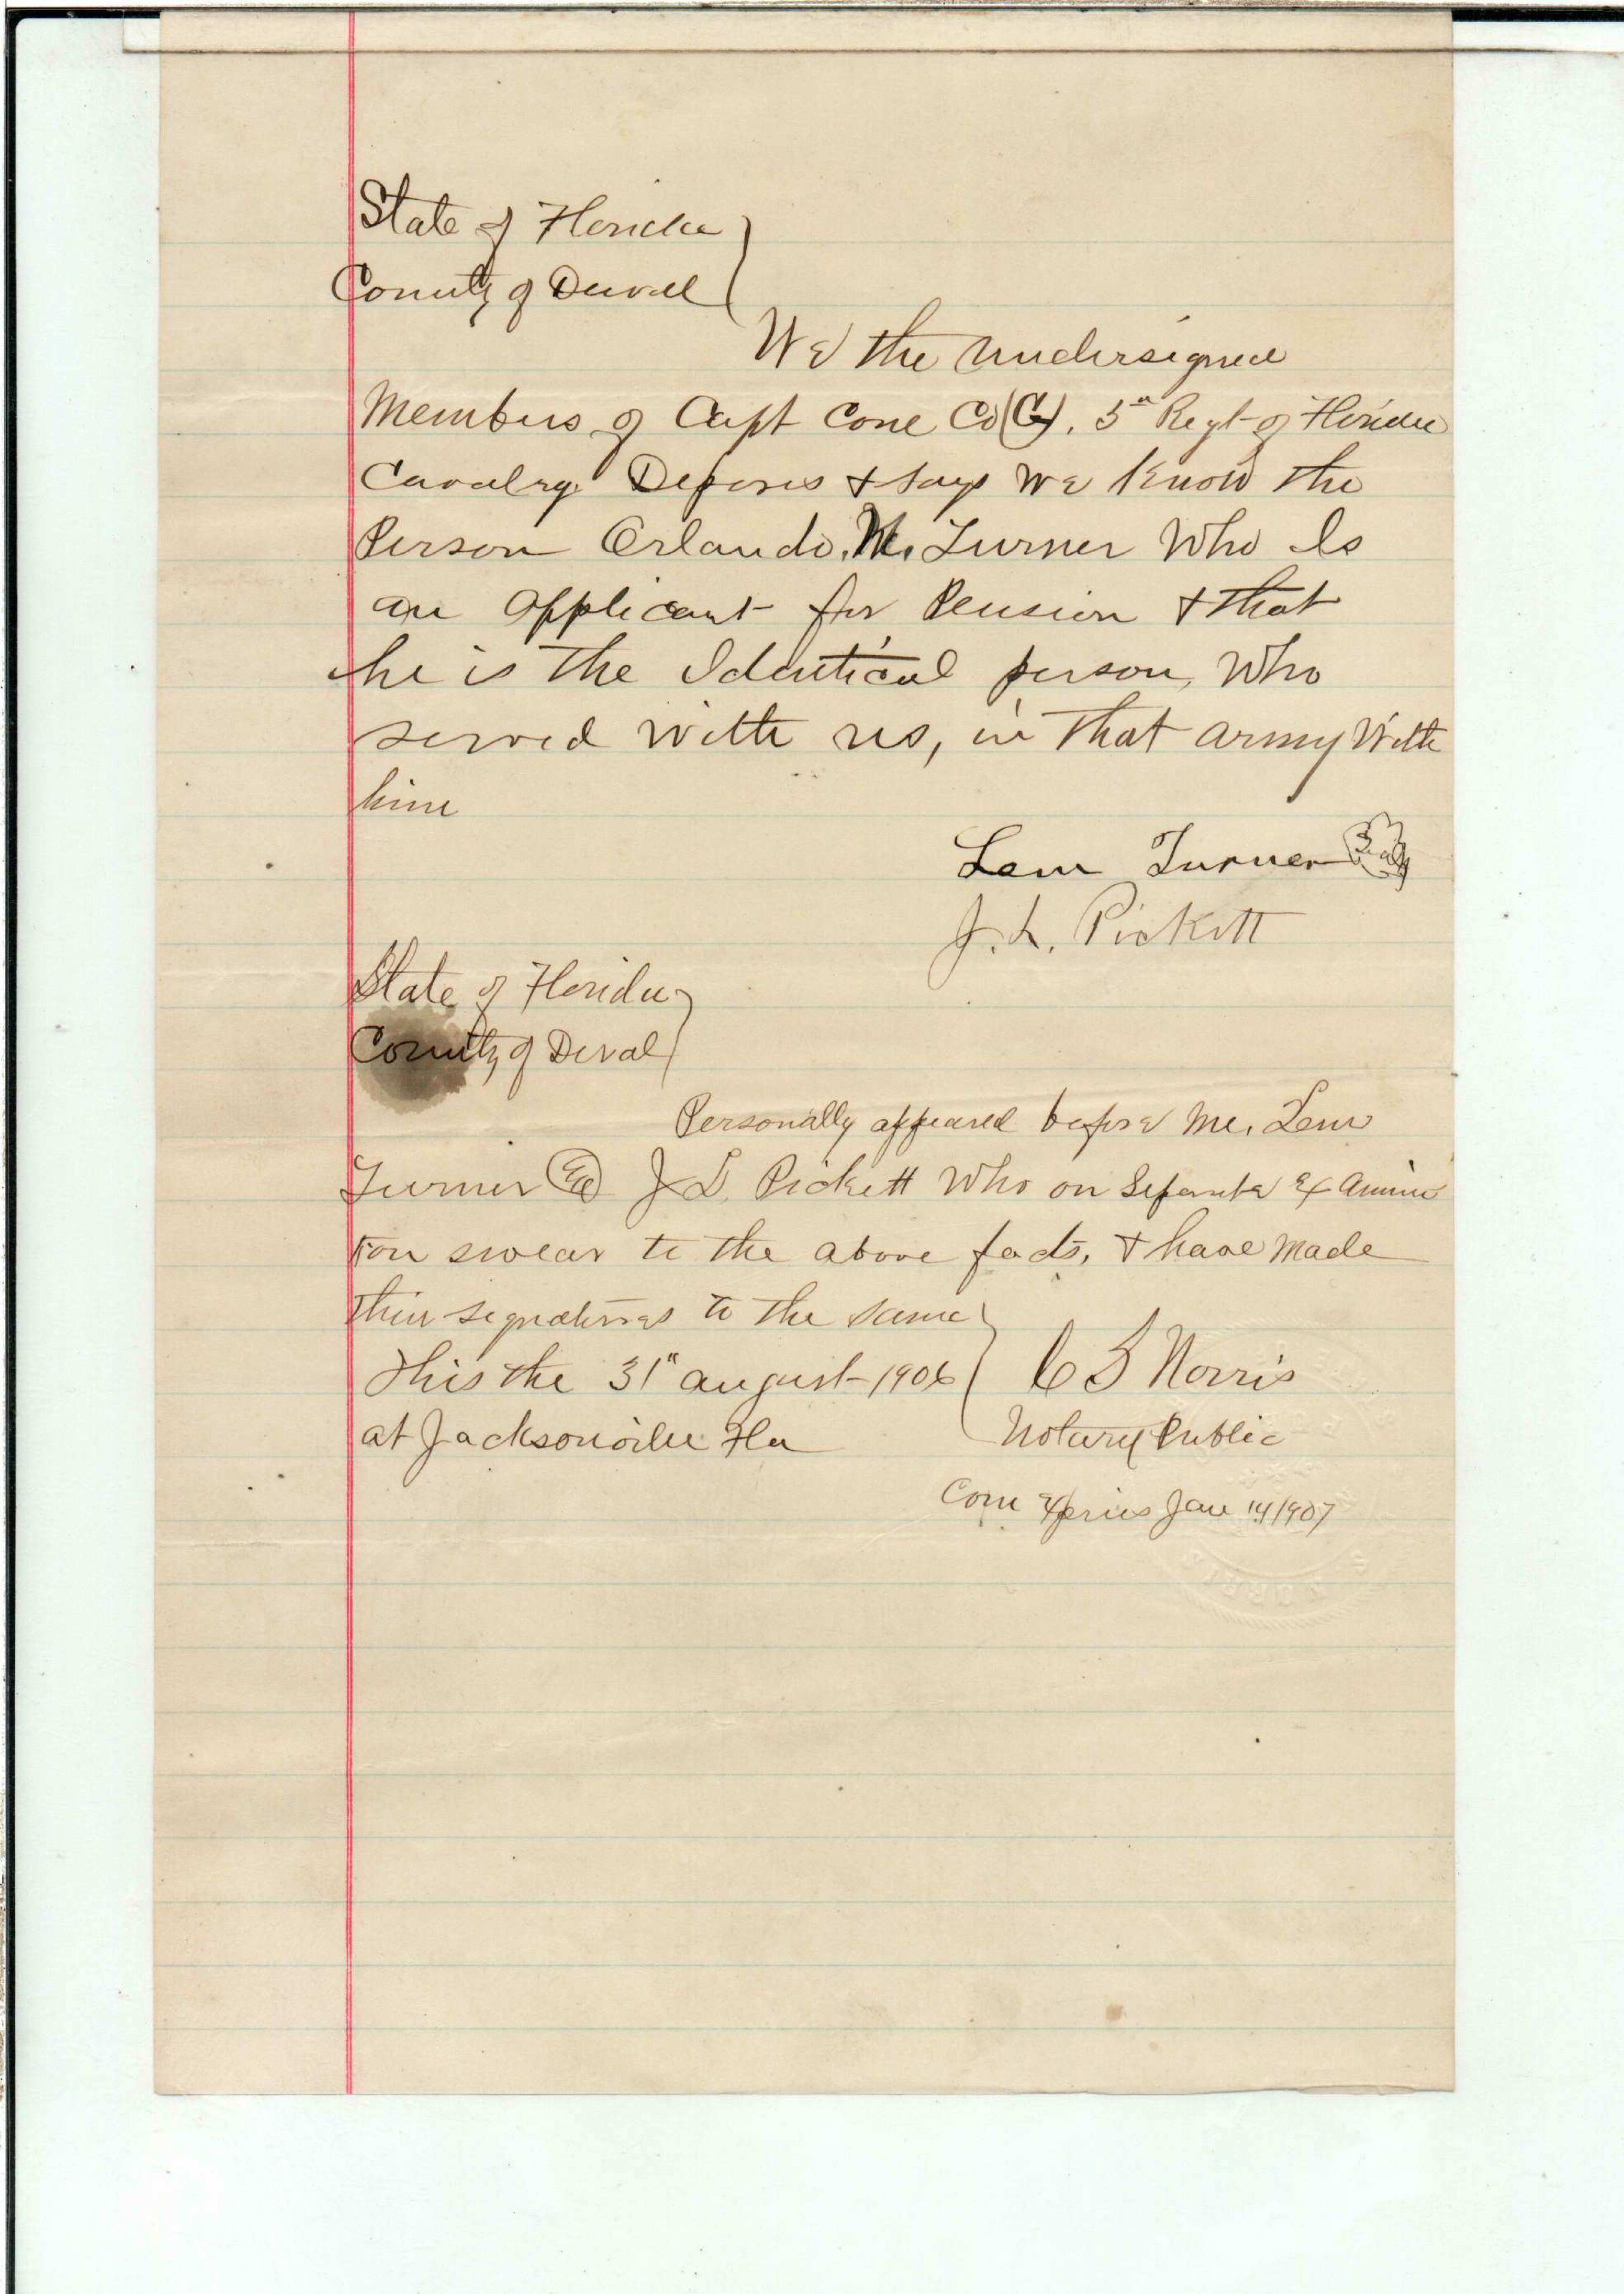 State of Florida
County of Duval
We the undersigned
Members of Capt Cone Co (C), 5th Regt of Florida
Cavalry Deposes & says We Know the
Person Orlando. M. Turner Who Is
an applicant for Pension & that
he is the Identical person, Who
served with us, in that army With
him
Lem Turner
J. L. Pickett
State of Florida
County of Duval
Personally appeared before me, Lem
Turner J L Pickett Who on Separate Examina
tion swear to the above facts, & have made
their signatures to the same
this the 31st august 1906
C S Norris
at Jacksonville Fla
Notary Public
Com Expires Jan 14/1907